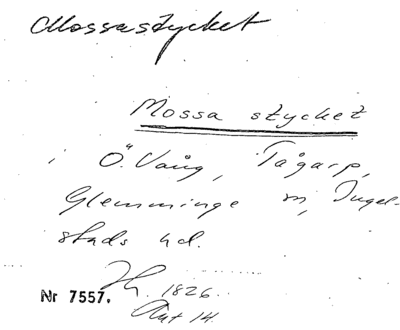 Mossastycket
Mossa stycket
i Ö. Vång, Tågarp,
Glemminge sn, Ingel-
stads hd.
1826.
Nr 7557. Akt 14.